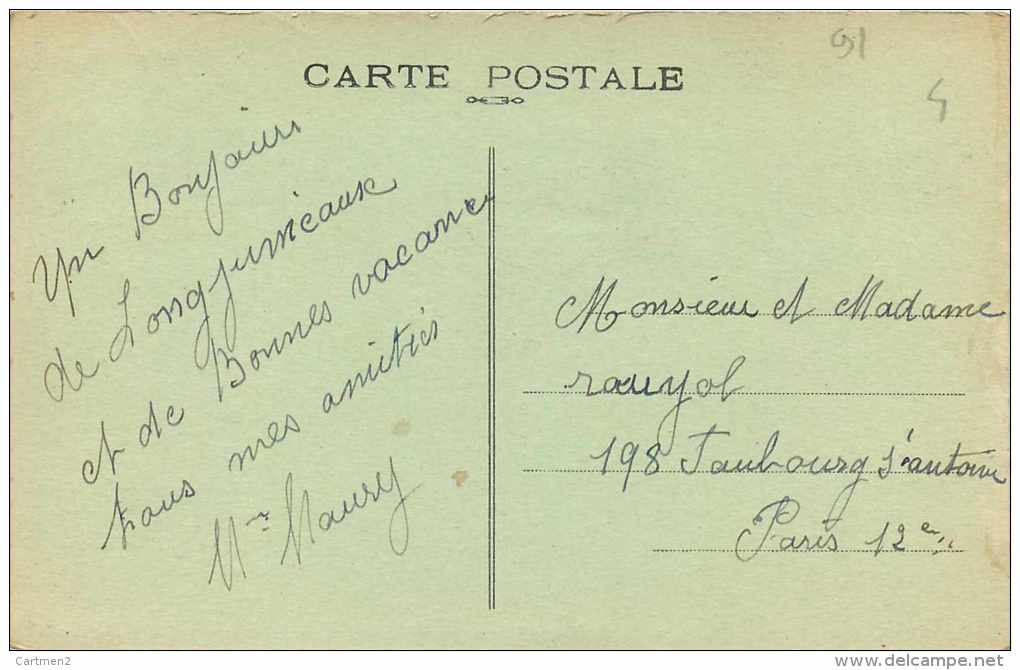 91
CARTE POSTALE
Un Bonjour
de Longjumeaux
et de Bonnes vacance
tous mes amitiés
Mme Maury
Monsieur et Madame
rouyol
198 Faubourg St antoine
Paris 12e
Cartmen2
www.delcampe.net